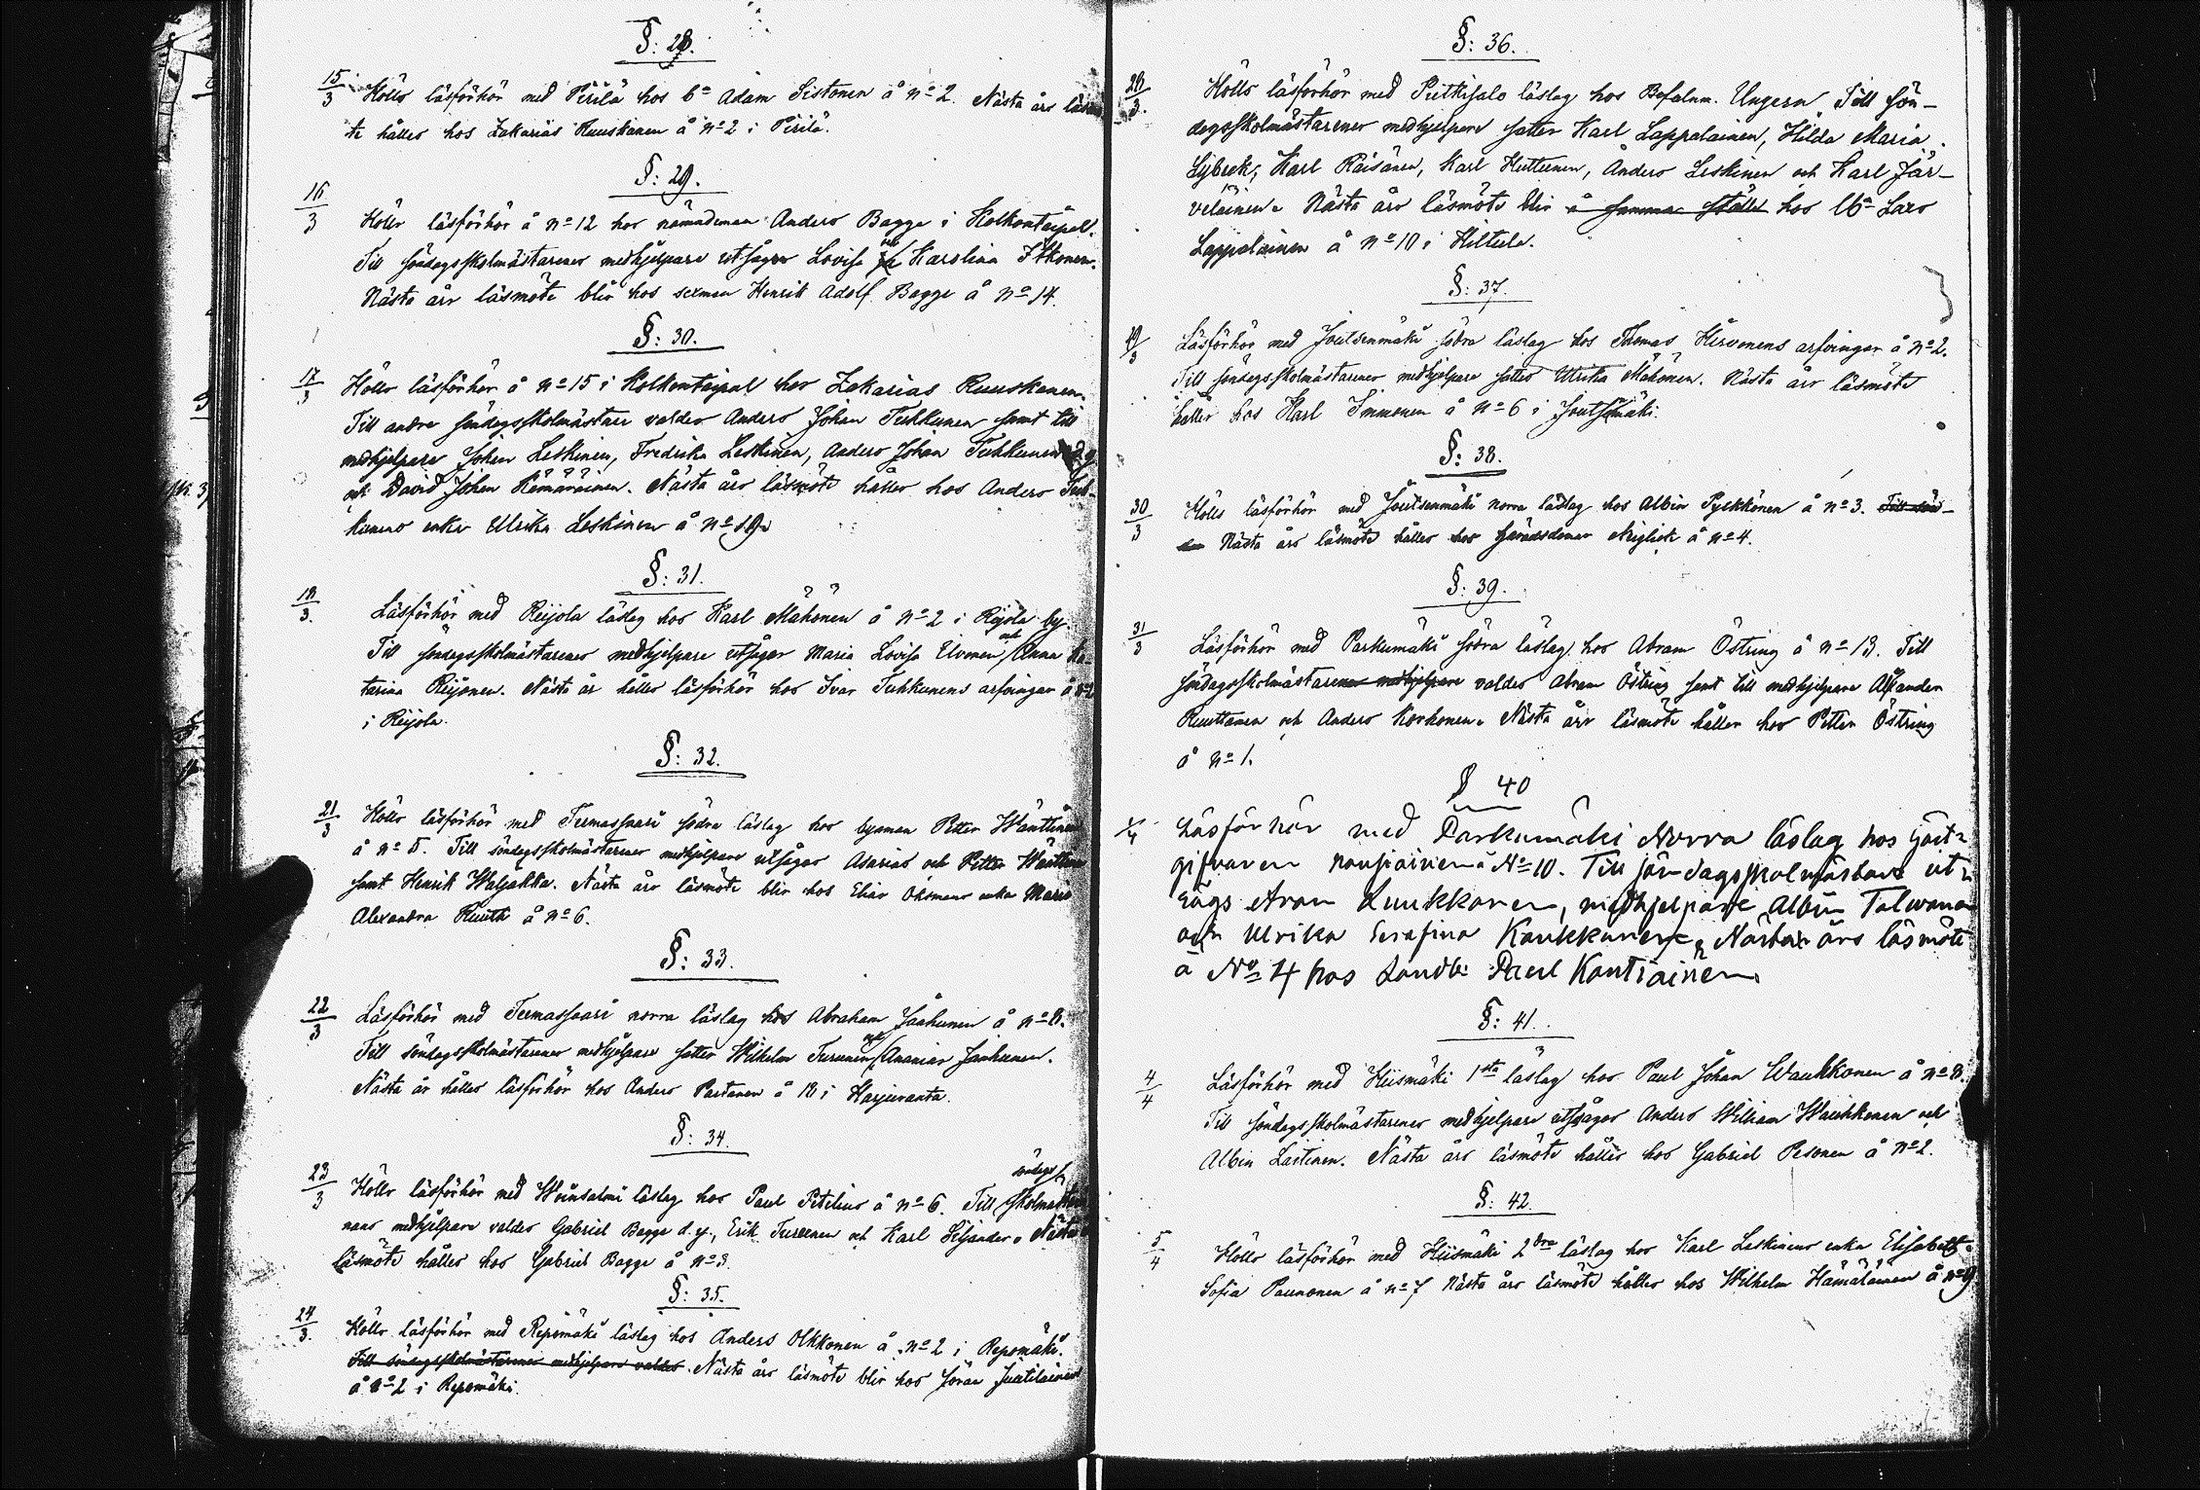 §: 28.
15/3 Hölls läsförhör med Pirilä hos b:n Adam Sistonen å No 2. Nästa års läsmö-
te hålles hos Zakarias Ruuskanen å No 2 i Pirilä.
§: 29.
16/3 Hölls läsförhör å No 12 hos nämndeman Anders Bagge i Kolkontaipal.
Till söndagsskolmästarenes medhjelpare utsages Lovisa och Karolina Itkonen.
Nästa års läsmöte blir hos sexman Henrik Adolf Bagge å No 14.
§: 30.
17/3 Hölls läsförhör å No 15 i Kolkontaipal hos Zakarias Ruuskanen.
Till andre söndagsskolmästare valdes Anders Johan Tuhkunen samt till
medhjelpare Johan Leskinen, Fredrika Leskinen, Anders Johan Tuhkunen
och David Johan Hämäräinen. Nästa års läsmöte hålles hos Anders Tuh-
kunens enka Ulrika Leskinen å No 19.
§: 31.
18/3. Läsförhör med Reijola läslag hos Karl Mähönen å No 2 i Reijola by.
Till söndagsskolmästarenes medhjelpare utsåges Maria Lovisa Elvonen och Anna Ka-
tarina Reijonen. Nästa år hålles läsförhör hos Ivar Tuhkunens arfvingar å No 2
i Reijola.
§: 32.
21/3 Hölls läsförhör med Teemassaari södra läslag hos byaman Petter Wänttinen
å No 5. Till söndagsskolmästarenes medhjelpare utsåges Asarias och Petter Wänttinen
samt Henrik Waljakka. Nästa års läsmöte blir hos Elias Öhmans enka Maria
Alexandra Ruuth å No 6.
§: 33.
22/3 Läsförhör med Teemassaari norra läslag hos Abraham Jauhunen å No 8.
Till söndagsskolmästarenes medhjelpare sattes Wilhelm Turunen och Ananias Jauhunen.
Nästa år hålles läsförhör hos Anders Partanen å 18 i Harjuranta.
§: 34.
23/3 Hölls läsförhör med Woinsalmi läslag hos Paul Pitelius å No 6. Till söndagsskolmästare-
nans medhjelpare valdes Gabriel Bagge d.y., Erik Turunen och Karl Siljander. Nästa
läsmöte hålles hos Gabriel Bagge å No 3.
§: 35.
24/3. Hölls läsförhör med Repomäki läslag hos Anders Olkkonen å No 2 i Repomäki.
Till söndagsskolmästarenes medhjelpare valdes. Nästa års läsmöte blir hos Jöran Juutilainen
å No 2 i Repomäki.
§: 36.
28/3. Hölls läsförhör med Pietkisalo läslag hos Befalnm. Ungern. Till sön-
dagsskolmästarenes medhjelpare sattes Karl Lappalainen, Hilda Maria
Lybeck, Karl Räisänen, Karl Huttunen, Anders Leskinen och Karl Jär-
veläinen. Nästa års läsmöte blir å samma ställe hos lb:n Lars
Lappalainen å No 10 i Hiltula.
§: 37.
29/3 Läsförhör med Joutsenmäki södra läslag hos Thomas Hirvonens arfvingar å No 2.
Till söndagsskolmästarenes medhjelpare sattes Ulrika Mähönen. Nästa års läsmöte
hålles hos Karl Immonen å No 6 i Joutsenmäki.
§: 38.
30/3 Hölls läsförhör med Joutsenmäki norra läslag hos Albin Pyykkönen å No 3. Till sön-
Nästa års läsmöte hålles hos häradsdomar Niiglick å No 4.
§: 39.
31/3 Läsförhör med Parkumäki södra läslag hos Abram Östring å No 13. Till
söndagsskolmästarenes medhjelpare valdes Abram Östring samt till medhjelpare Alexander
Ruuttanen och Anders Korhonen. Nästa års läsmöte hålles hos Petter Östring
å No 1.
§ 40
1/4 Läsförhör med Parkumäki Norra läslag hos Gäst-
gifvaren Kousiainen å No 10. Till söndagsskolmästare ut-
sågs Aron Luukkonen, medhjelpare Albin Tolwanen
och Ulrika Serafina Kaukkunen. Nästa års läsmöte
å No 4 hos Landb: Paul Kontiainen.
§: 41.
4/4 Läsförhör med Hiismäki 1sta läslag hos Paul Johan Wauhkonen å No 8.
Till söndagsskolmästarenes medhjelpare utsåges Anders William Wauhkonen och
Albin Laitinen. Nästa års läsmöte hålles hos Gabriel Pesonen å No 2.
§: 42.
5/4 Hölls läsförhör med Hiismäki 2dra läslag hos Karl Leskinens enka Elisabeth
Sofia Paunonen å No 7. Nästa års läsmöte hålles hos Wilhelm Hämäläinen å No 9.